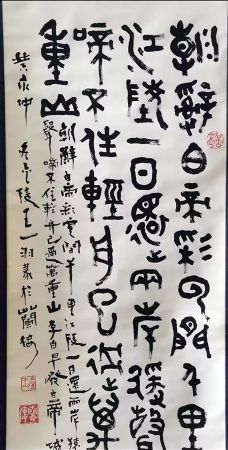 朝辭白帝彩云間千里
江陵一日還兩岸猿聲
啼不住輕舟已過萬
重山
朝辭白帝彩雲間千里江陵一日還兩岸猿
聲啼不住輕舟已過萬重山李白早發白帝城
陵王一羽篆於蘭